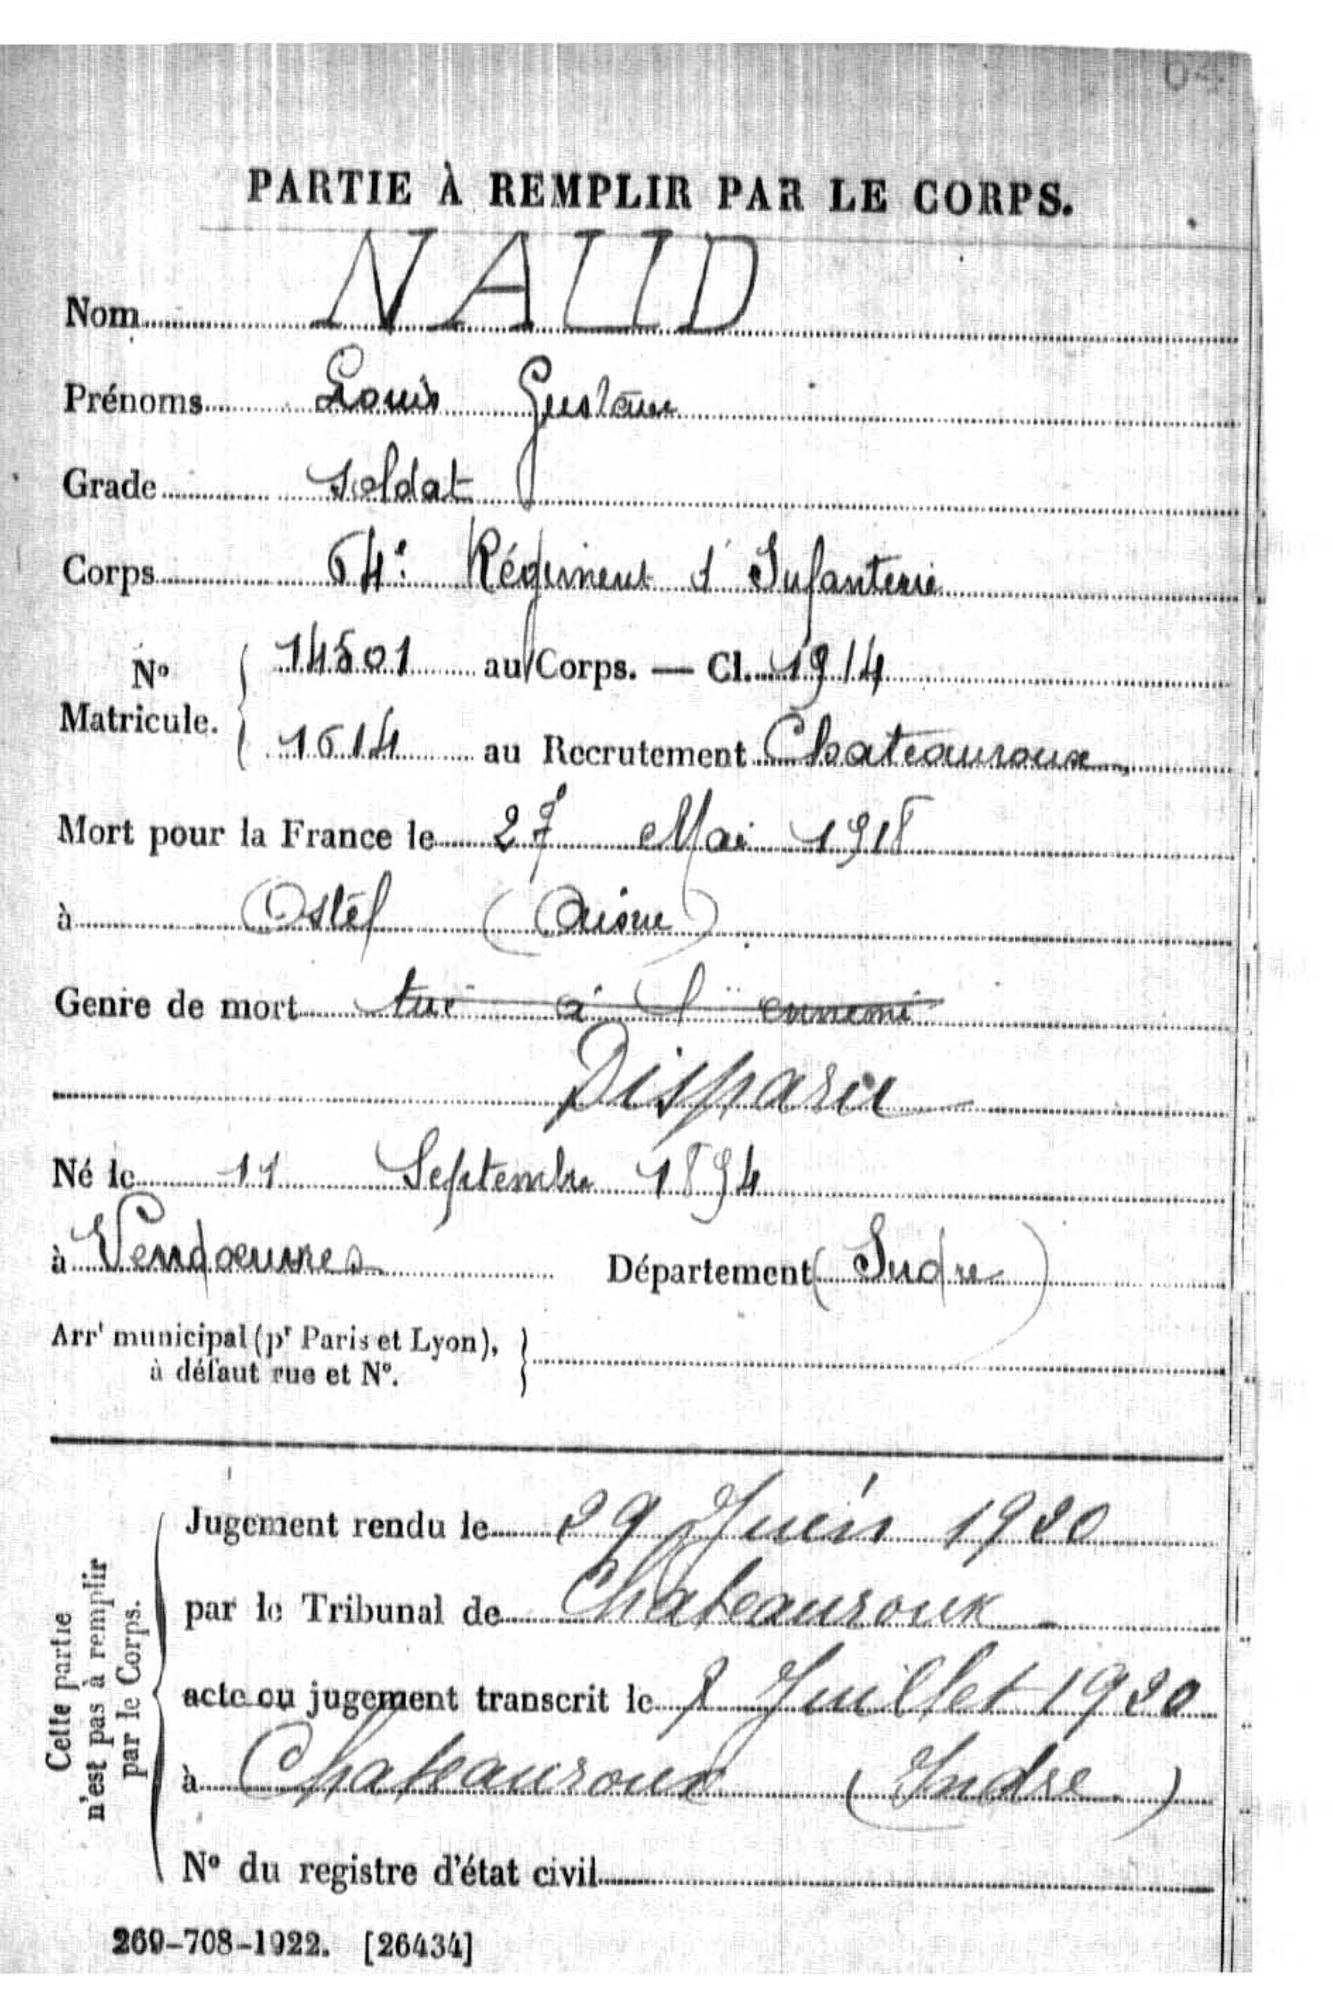 PARTIE À REMPLIR PAR LE CORPS.
Nom NAUD
Prénoms Louis Gustave
Grade soldat
Corps 64e Régiment d'Infanterie
No Matricule.
14501 au Corps. — Cl. 1914
1614 au Recrutement Chateauroux
Mort pour la France le 27 Mai 1918
à Ostel (Aisne)
Genre de mort tué à l'ennemi
Disparu
Né le 11 Septembre 1894
à Vendoeuvres Département (Indre)
Arrt municipal (pr Paris et Lyon),
à défaut rue et No.
Cette partie
n'est pas à remplir
par le Corps.
Jugement rendu le 29 Juin 1920
par le Tribunal de Chateauroux
acte ou jugement transcrit le Juillet 1920
à Chateauroux (Indre)
No du registre d'état civil
269-708-1922. [26434]